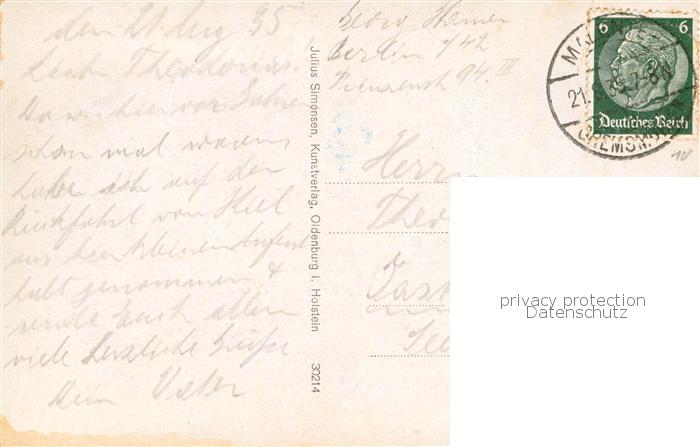 den 21 Aug 35
Lieber Theodorus!
Da wir hier vor Jahren
schon mal waren
habe ich auf der
Rückfahrt von Kiel
aus hier kleinen Aufent
halt genommen &
sende Euch allen
viele herzliche Grüße
Dein Vater
Julius Simonsen, Kunstverlag, Oldenburg i. Holstein 30214
Georg
Berlin
94 III
6 6
Deutsches Reich
21. 35 7-8
GREMSM
Herrn
Theo
10
privacy protection
Datenschutz